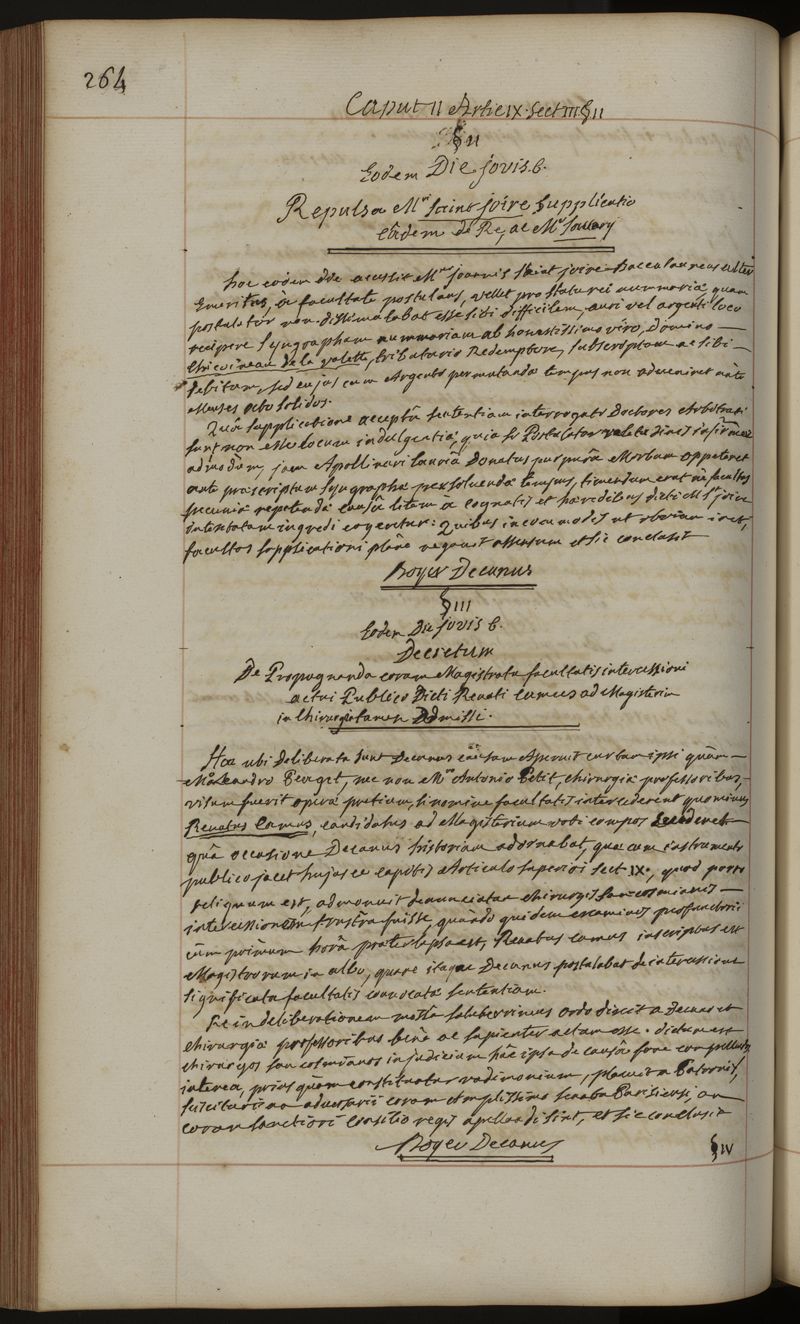 264
Caput II Artic IX. Sect III § II
§ II
Eodem Die Jovis 6.
Repulsa Mri Saint Joire Supplicatio
Eadem de Re, ac Mri
hoc eodem die accessit Mr Joannes Saint joire Baccalaureus
Emeritus, à facultate postulans, vellet pro statu rei nummariæ, quam
postulatur non dissimulabat esse sibi difficilem, auri vel argenti loco
recipere syngrapham nummariam ab honestissimo viro, Domino
Chicoineau de la valette, tributario Redemptore, subscriptam ac sibi
debitam, sed cujus cum Argento permutandæ tempus non adveniret ante
Menses octo solidos.
Quâ supplicatione acceptâ sententiam interrogati Doctores Arbitrati
sunt non esse locum indulgentiæ, quia si Postulator
admodum, jam Apollinari laureâ Donatus mortem oppeteret
ante præscriptum syngraphæ persolvendæ tempus, timendum erat ne facultas
pecuniæ repetendæ causâ litem à cognatis et hæredibus dicti M St joire
intentatam ingredi cogeretur: Quibus incommodis ut obviam iret,
facultas supplicationi plane negavit assensum et sic conclusit
Boyer Decanus
§ III
Eodem Die Jovis 6.
Decretum
De Propugnanda coram Magistratu facultatis intercessioni
actui Publico Dicti Renati Camus ad Magisterium
in Chirurgia tamen Admissi.
Hæc ubi deliberata sunt Decanus causam Aperuit cur tam ipsi quàm
Mro Leandro Peaget, nec non Mro Antonio Petit, chirurgiæ professoribus,
visum fuerit operæ pretium, si nomine facultatis intercederent quominus
Renatus Camus, candidatus ad Magisterium voti compos
quâ occasione Decanus historiam adornabat, quæ cum instrumento
publico jacet hujusce capitis Articulo superiori sect IX., quod porro
reliquum est, admonuit denunciatam chirurgis San-cosmianis
intercessionem frustra fuisse, quando quidem examinis
cùm primum horâ præterlapsa est, Renatus Camus inscriptus est
Magistrorum in albo, quare itaque Decanus postulabat de intercessione
significata facultatis convocatæ sententiam.
Re in deliberationem missâ saluberrimus ordo dixit a Decano et
chirurgiæ professoribus benè ac sapienter actum esse. dictum est
chirurgos San cosmianos in judicium hâc ipsa de causâ fore compellendos,
interea, prius quàm constituatur vadimonium, placuit a Patronis,
sciscitari an adversarii coram amplissimo senatu Parisiensi, an
coram sanctiori consilio regis apellandi sint, et sic conclusit
Boyer Decanus
§ IV